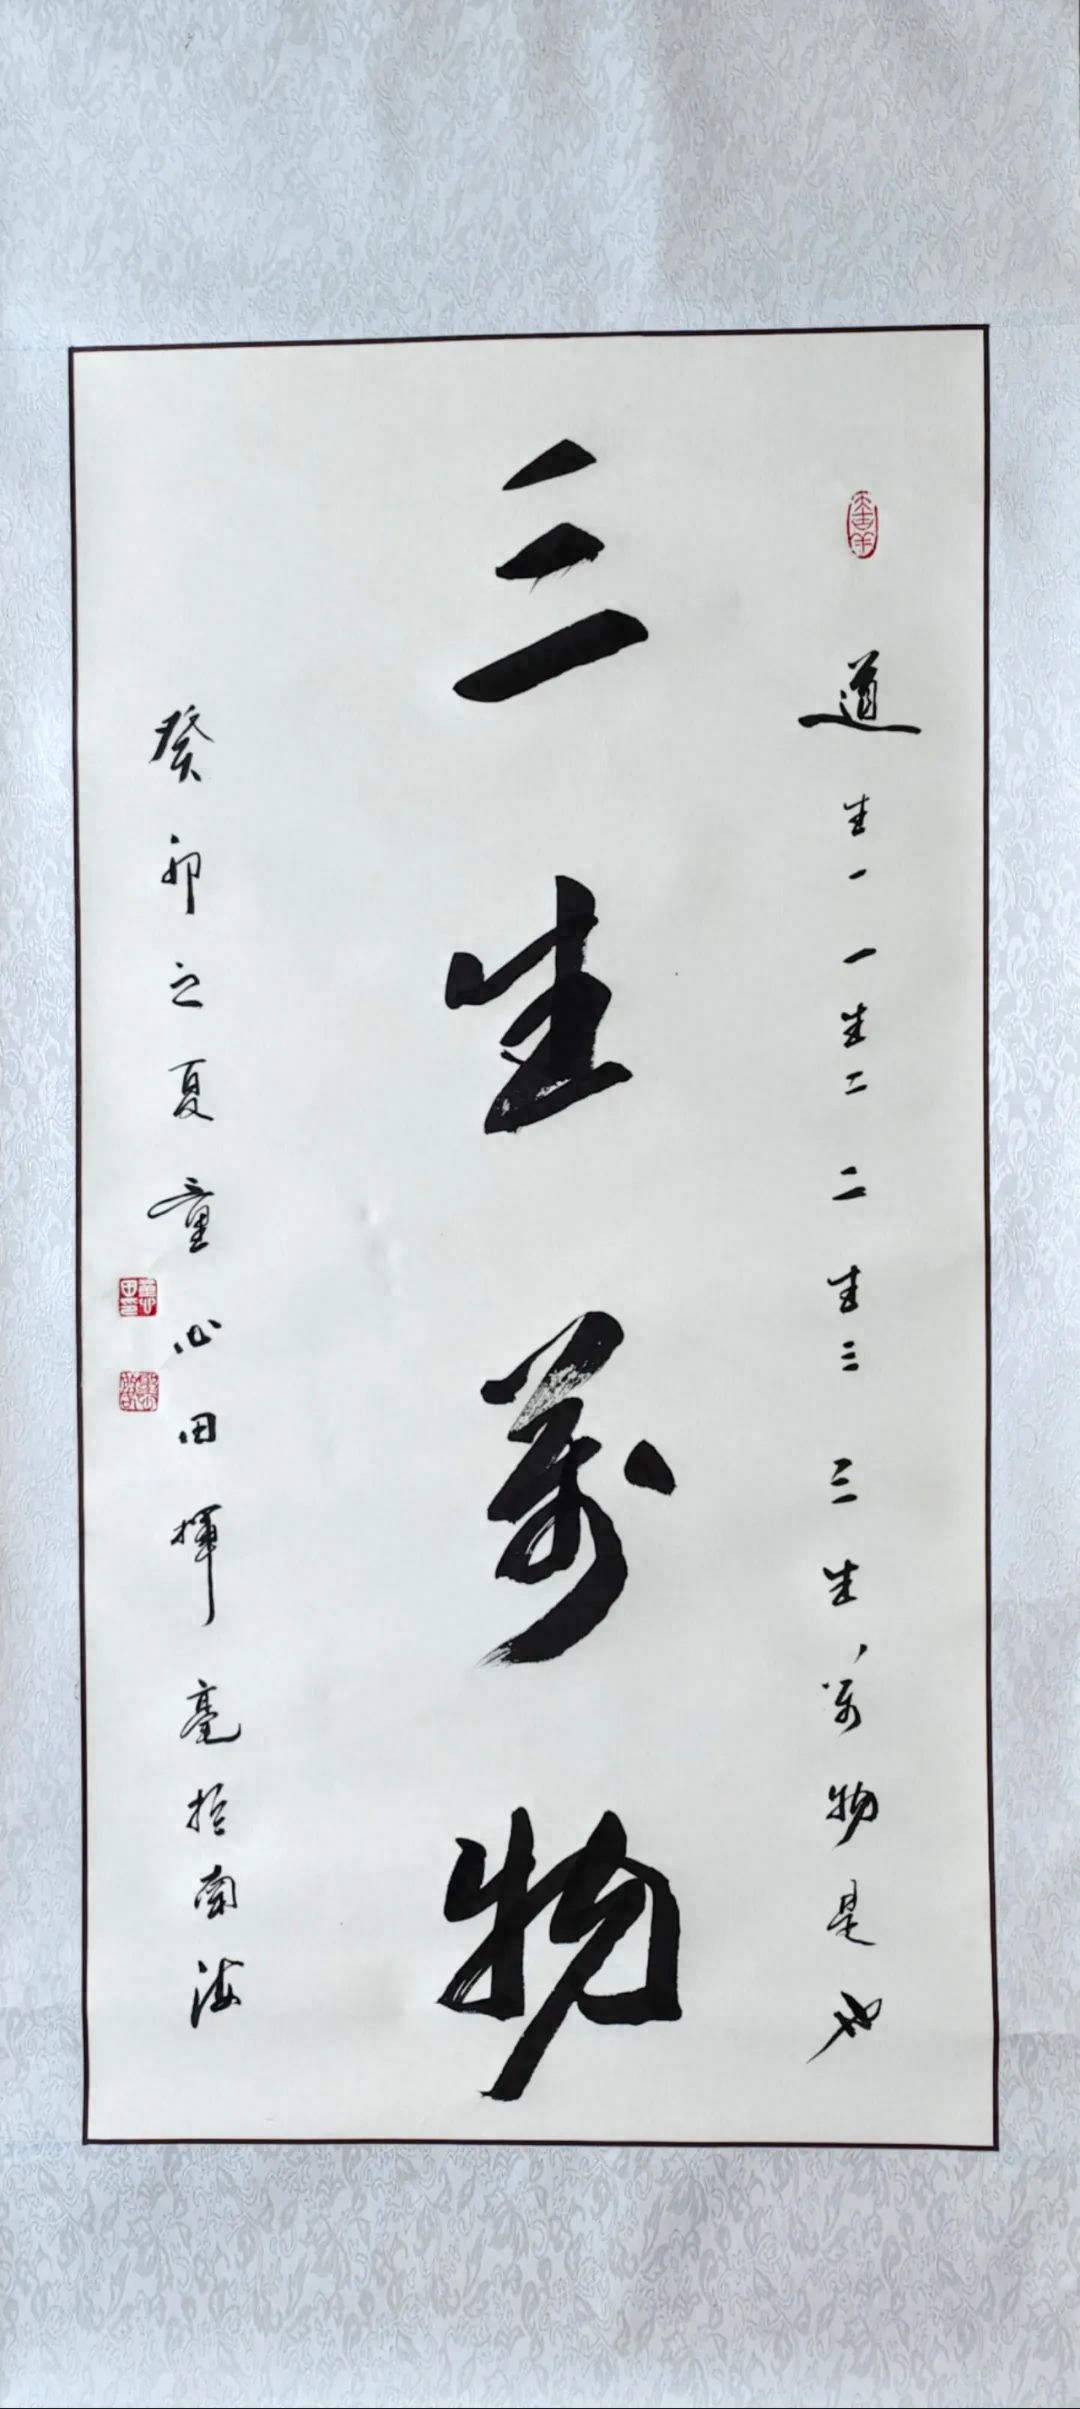 道生一一生二二生三三生萬物是也
三生萬物
癸卯之夏童心田揮毫於南海